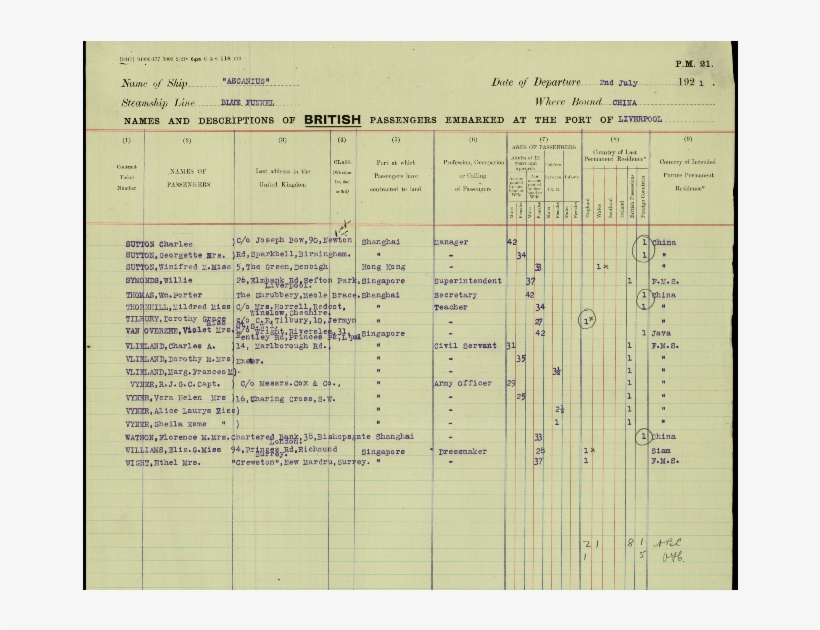 P.M. 21.
Name of Ship "ASCANIUS" Date of Departure 2nd July 1921.
Steamship Line BLUE FUNNEL Where Bound CHINA
NAMES AND DESCRIPTIONS OF BRITISH PASSENGERS EMBARKED AT THE PORT OF LIVERPOOL
(1) (2) (3) (4) (5) (6) (7) (8) (9)
Contract Ticket Number
NAMES OF PASSENGERS
Last address in the United Kingdom
CLASS (Whether 1st, 2nd or 3rd)
Port at which Passengers have contracted to land
Profession, Occupation or Calling of Passengers
AGES OF PASSENGERS
Adults of 12 years and upwards
Children
Infants
Country of Last Permanent Residence*
England Wales Scotland Ireland British Possessions Foreign Countries
Country of Intended Future Permanent Residence*
1st
SUTTON Charles )C/o Joseph Dow,90,Newton Shanghai Manager 42 1 China
SUTTON,Georgette Mrs. )Rd,Sparkbell,Birmingham. " - 34 1 "
SUTTON,Winifred M.Miss 5,The Green,Denbigh Hong Kong - 33 1x "
SYMONDS,Willie 26,Elmbank Rd,Sefton Park, Singapore Superintendent 37 1 F.M.S.
Liverpool.
THOMAS,Wm.Porter The Shrubbery,Meole Brace. Shanghai Secretary 42 1 China
THORNHILL,Mildred Miss C/o Mrs.Horrell, " Teacher 34 "
Winslow,Cheshire.
TILBURY,Dorothy Grace Miss C/o C.F.Tilbury,10,Jermyn " - 27 1x "
VAN OVERZEE,Violet Mrs. Singapore - 42 1 Java
VLIELAND,Charles A. )14, Marlborough Rd., " Civil Servant 31 1 F.M.S.
VLIELAND,Dorothy M.Mrs) Exeter. " - 35 1 "
VLIELAND,Marg.Frances M)- " - 3½ 1 "
VYNER,R.J.G.C.Capt. ) C/o Messrs.Cox & Co., " Army Officer 29 1 "
VYNER,Vera Helen Mrs )16,Charing Cross,S.W. " - 25 1 "
VYNER,Alice Laurys Miss) " - 2½ 1 "
VYNER,Sheila Esme " ) " - 1 1 "
WATSON,Florence M.Mrs. Chartered Bank,38,Bishopsgate Shanghai - 33 1 China
London.
WILLIAMS,Eliz.G.Miss 94,Princes Rd,Richmond Singapore Dressmaker 26 1x Siam
Surrey.
WIGHT,Ethel Mrs. "Creweton",New Surrey. " - 37 1 F.M.S.
2 1 8 1
1 5